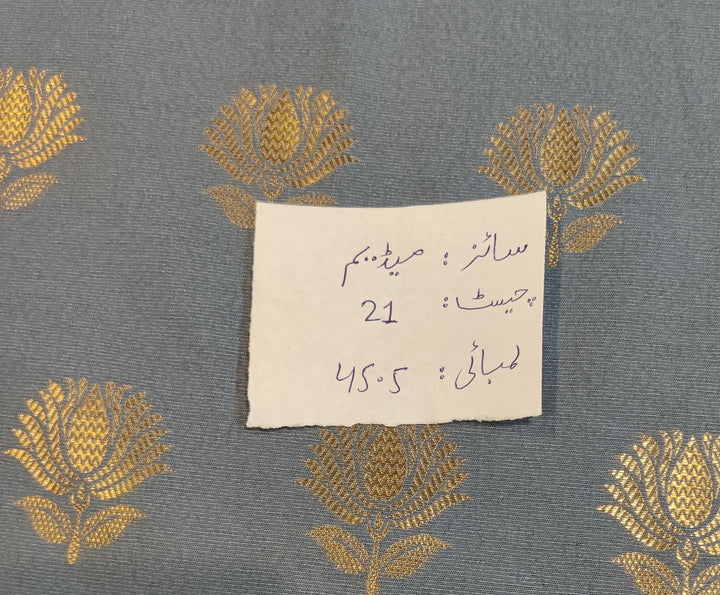 سائز: میڈیم
چیسٹ: 21
لمبائی: 45.5